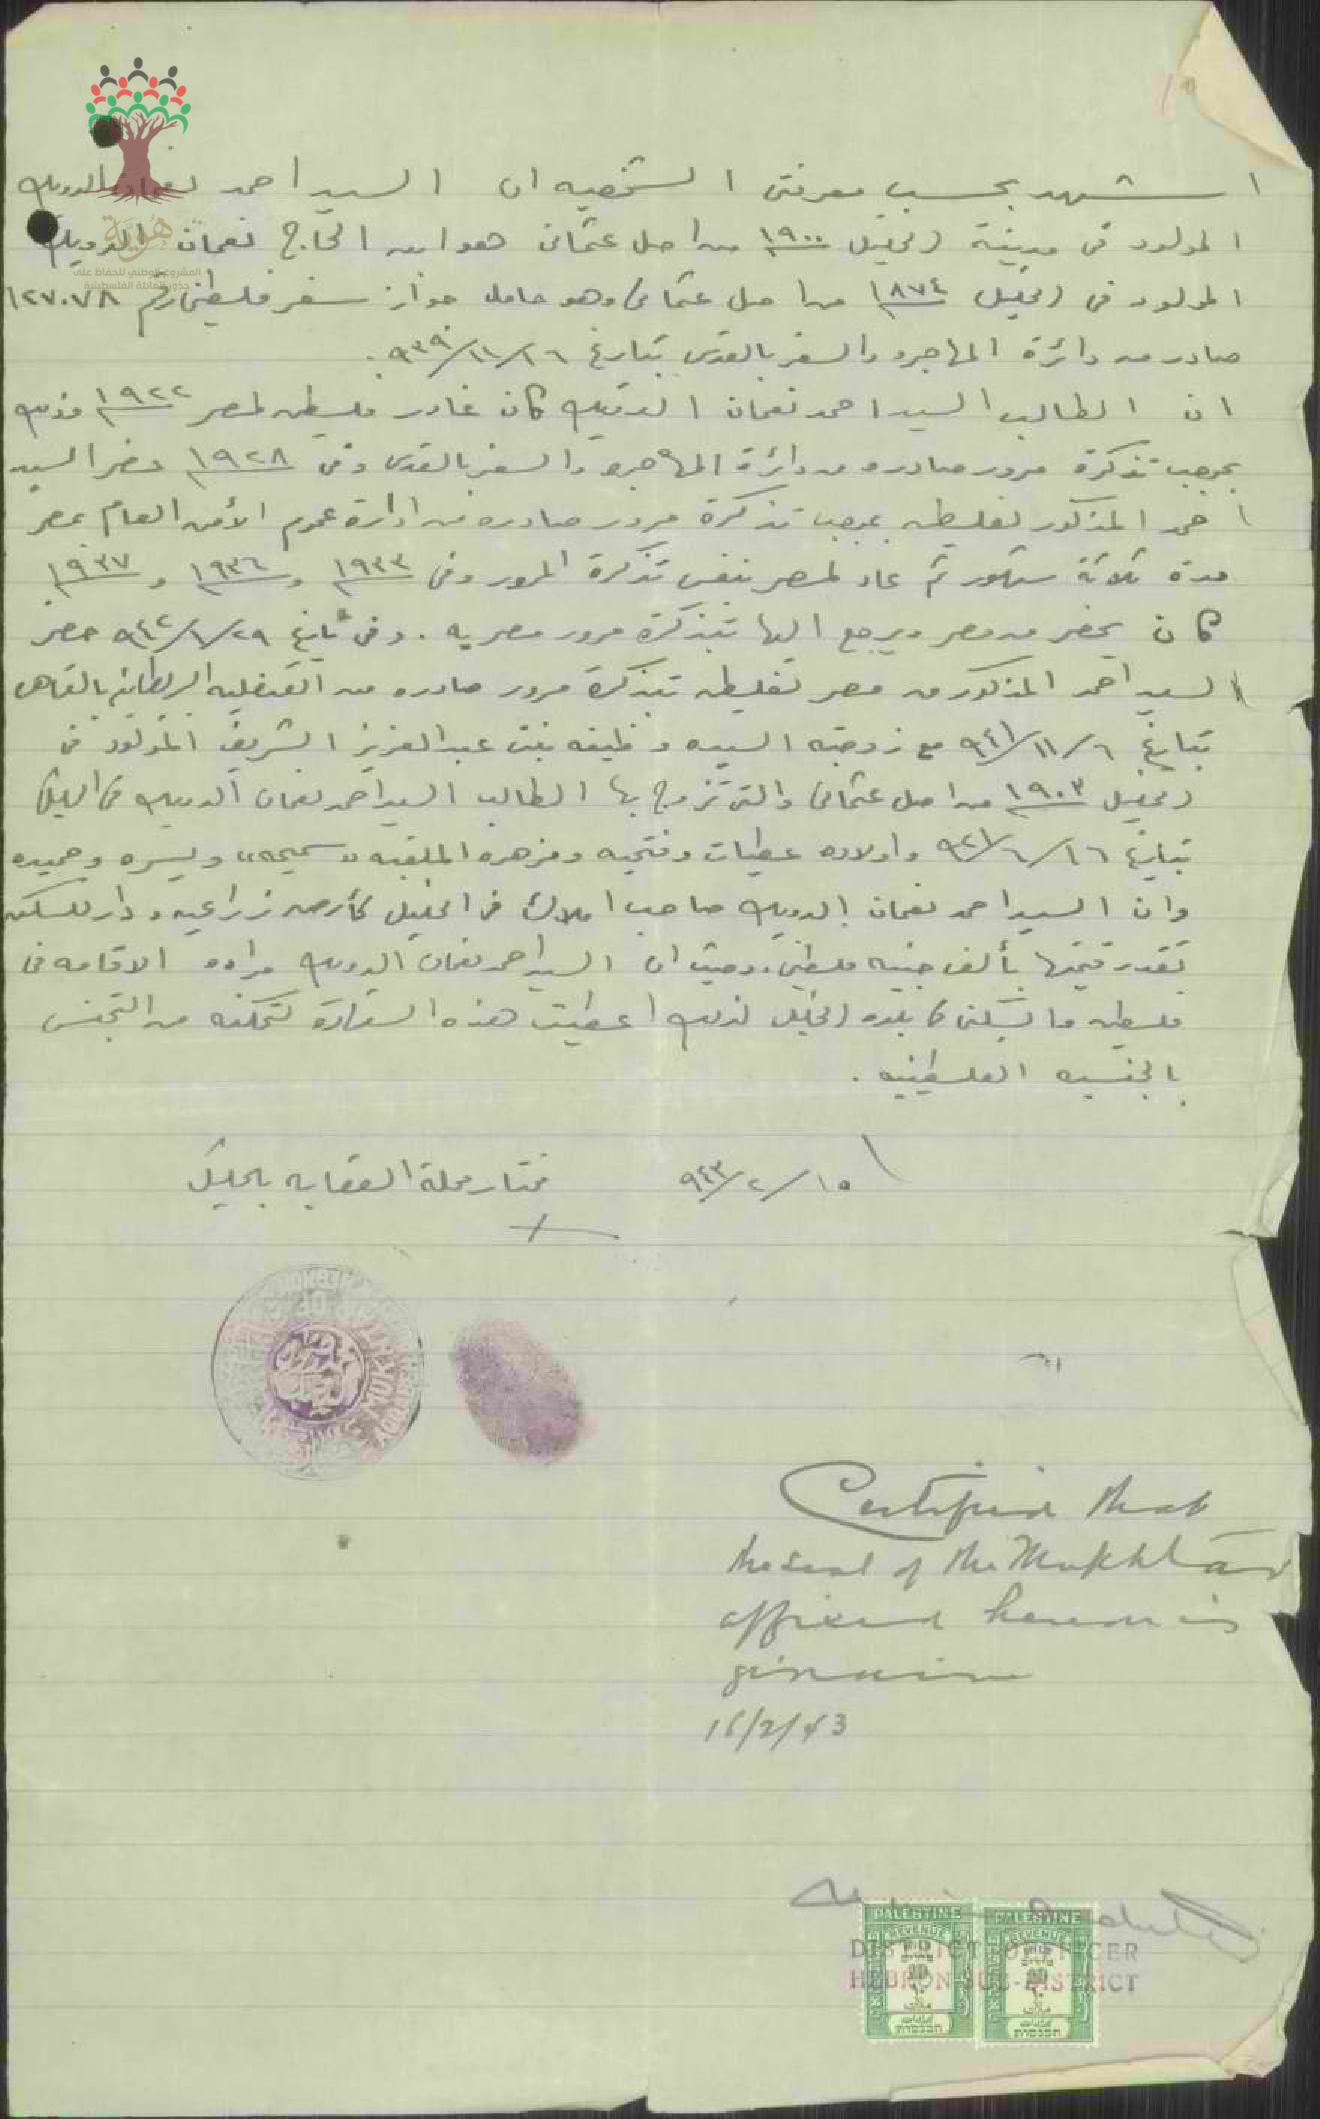 اشهد بحسب معرفتي الشخصيه ان السيد احمد نعمان الدويك
هوية
المشروع الوطني للحفاظ على
جذور العائلة الفلسطينية
المولود في مدينة الخليل ١٩٠٠ من اصل عثماني هو ابن الحاج نعمان الدويك
المولود في الخليل ١٨٧٤ من اصل عثماني وهو حامل جواز سفر فلسطيني رقم ١٢٧٠٧٨
صادر من دائرة المهاجره والسفر بالقدس بتاريخ ١٦/١١/٩٣٩.
ان الطالب السيد احمد نعمان الدويك كان غادر فلسطين لمصر ١٩٢٢ وذلك
بموجب تذكرة مرور صادره من دائرة المهاجره والسفر بالقدس وفي ١٩٢٨ حضر السيد
احمد المذكور لفلسطين بموجب تذكرة مرور صادره من ادارة عموم الأمن العام بمصر
مدة ثلاثة شهور ثم عاد لمصر بنفس تذكرة المرور وفي ١٩٣٣ و ١٩٣٦ و ١٩٣٧
كان يحضر من مصر ويرجع اليها بتذكرة مرور مصريه . وفي تاريخ ٢٩/١/٩٤٢ حضر
السيد احمد المذكور من مصر لفلسطين بتذكرة مرور صادره من القنصليه البريطانيه بالقاهره
بتاريخ ٦/١١/٩٤١ مع زوجته السيده وظيفه بنت عبد العزيز الشريف المولوده في
الخليل ١٩٠٣ من اصل عثماني والتي تزوج بها الطالب السيد احمد نعمان الدويك في الخليل
بتاريخ ١٦/٦/٩٢١ واولاده عطيات وفتحيه وزهره الملقبه "سميحه" ويسره وحميده
وان السيد احمد نعمان الدويك صاحب املاك في الخليل كأرض زراعيه ودار للسكن
تقدر قيمتها بألف جنيه فلسطيني. وحيث ان السيد احمد نعمان الدويك مراده الاقامه في
فلسطين والسكنى في بلده الخليل لذلك اعطيت هذه الشهادة لتمكنه من التجنس
بالجنسيه الفلسطينيه .
١٥/٢/٩٤٣ مختار محلة العقابه بالخليل
Certified that
the seal of the Mukhtar
affixed hereon is
genuine
16/2/43
DISTRICT OFFICER
HEBRON SUB-DISTRICT
PALESTINE PALESTINE
REVENUE REVENUE